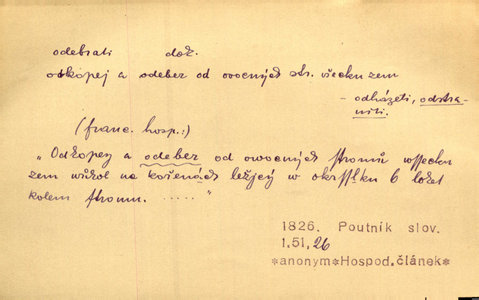 odebrati dok.
odkopej a odeber od ovocných str. všecku zem
- odházeti, odstra-
niti.
(franc. hosp.:)
„Odkopey a odeber od owocných stromů wssecku
zem wůkol na kořenách ležjcý w okrsslku 6 loket
kolem stromu. ....."
1826. Poutník slov.
1.51,26
*anonym*Hospod.článek*